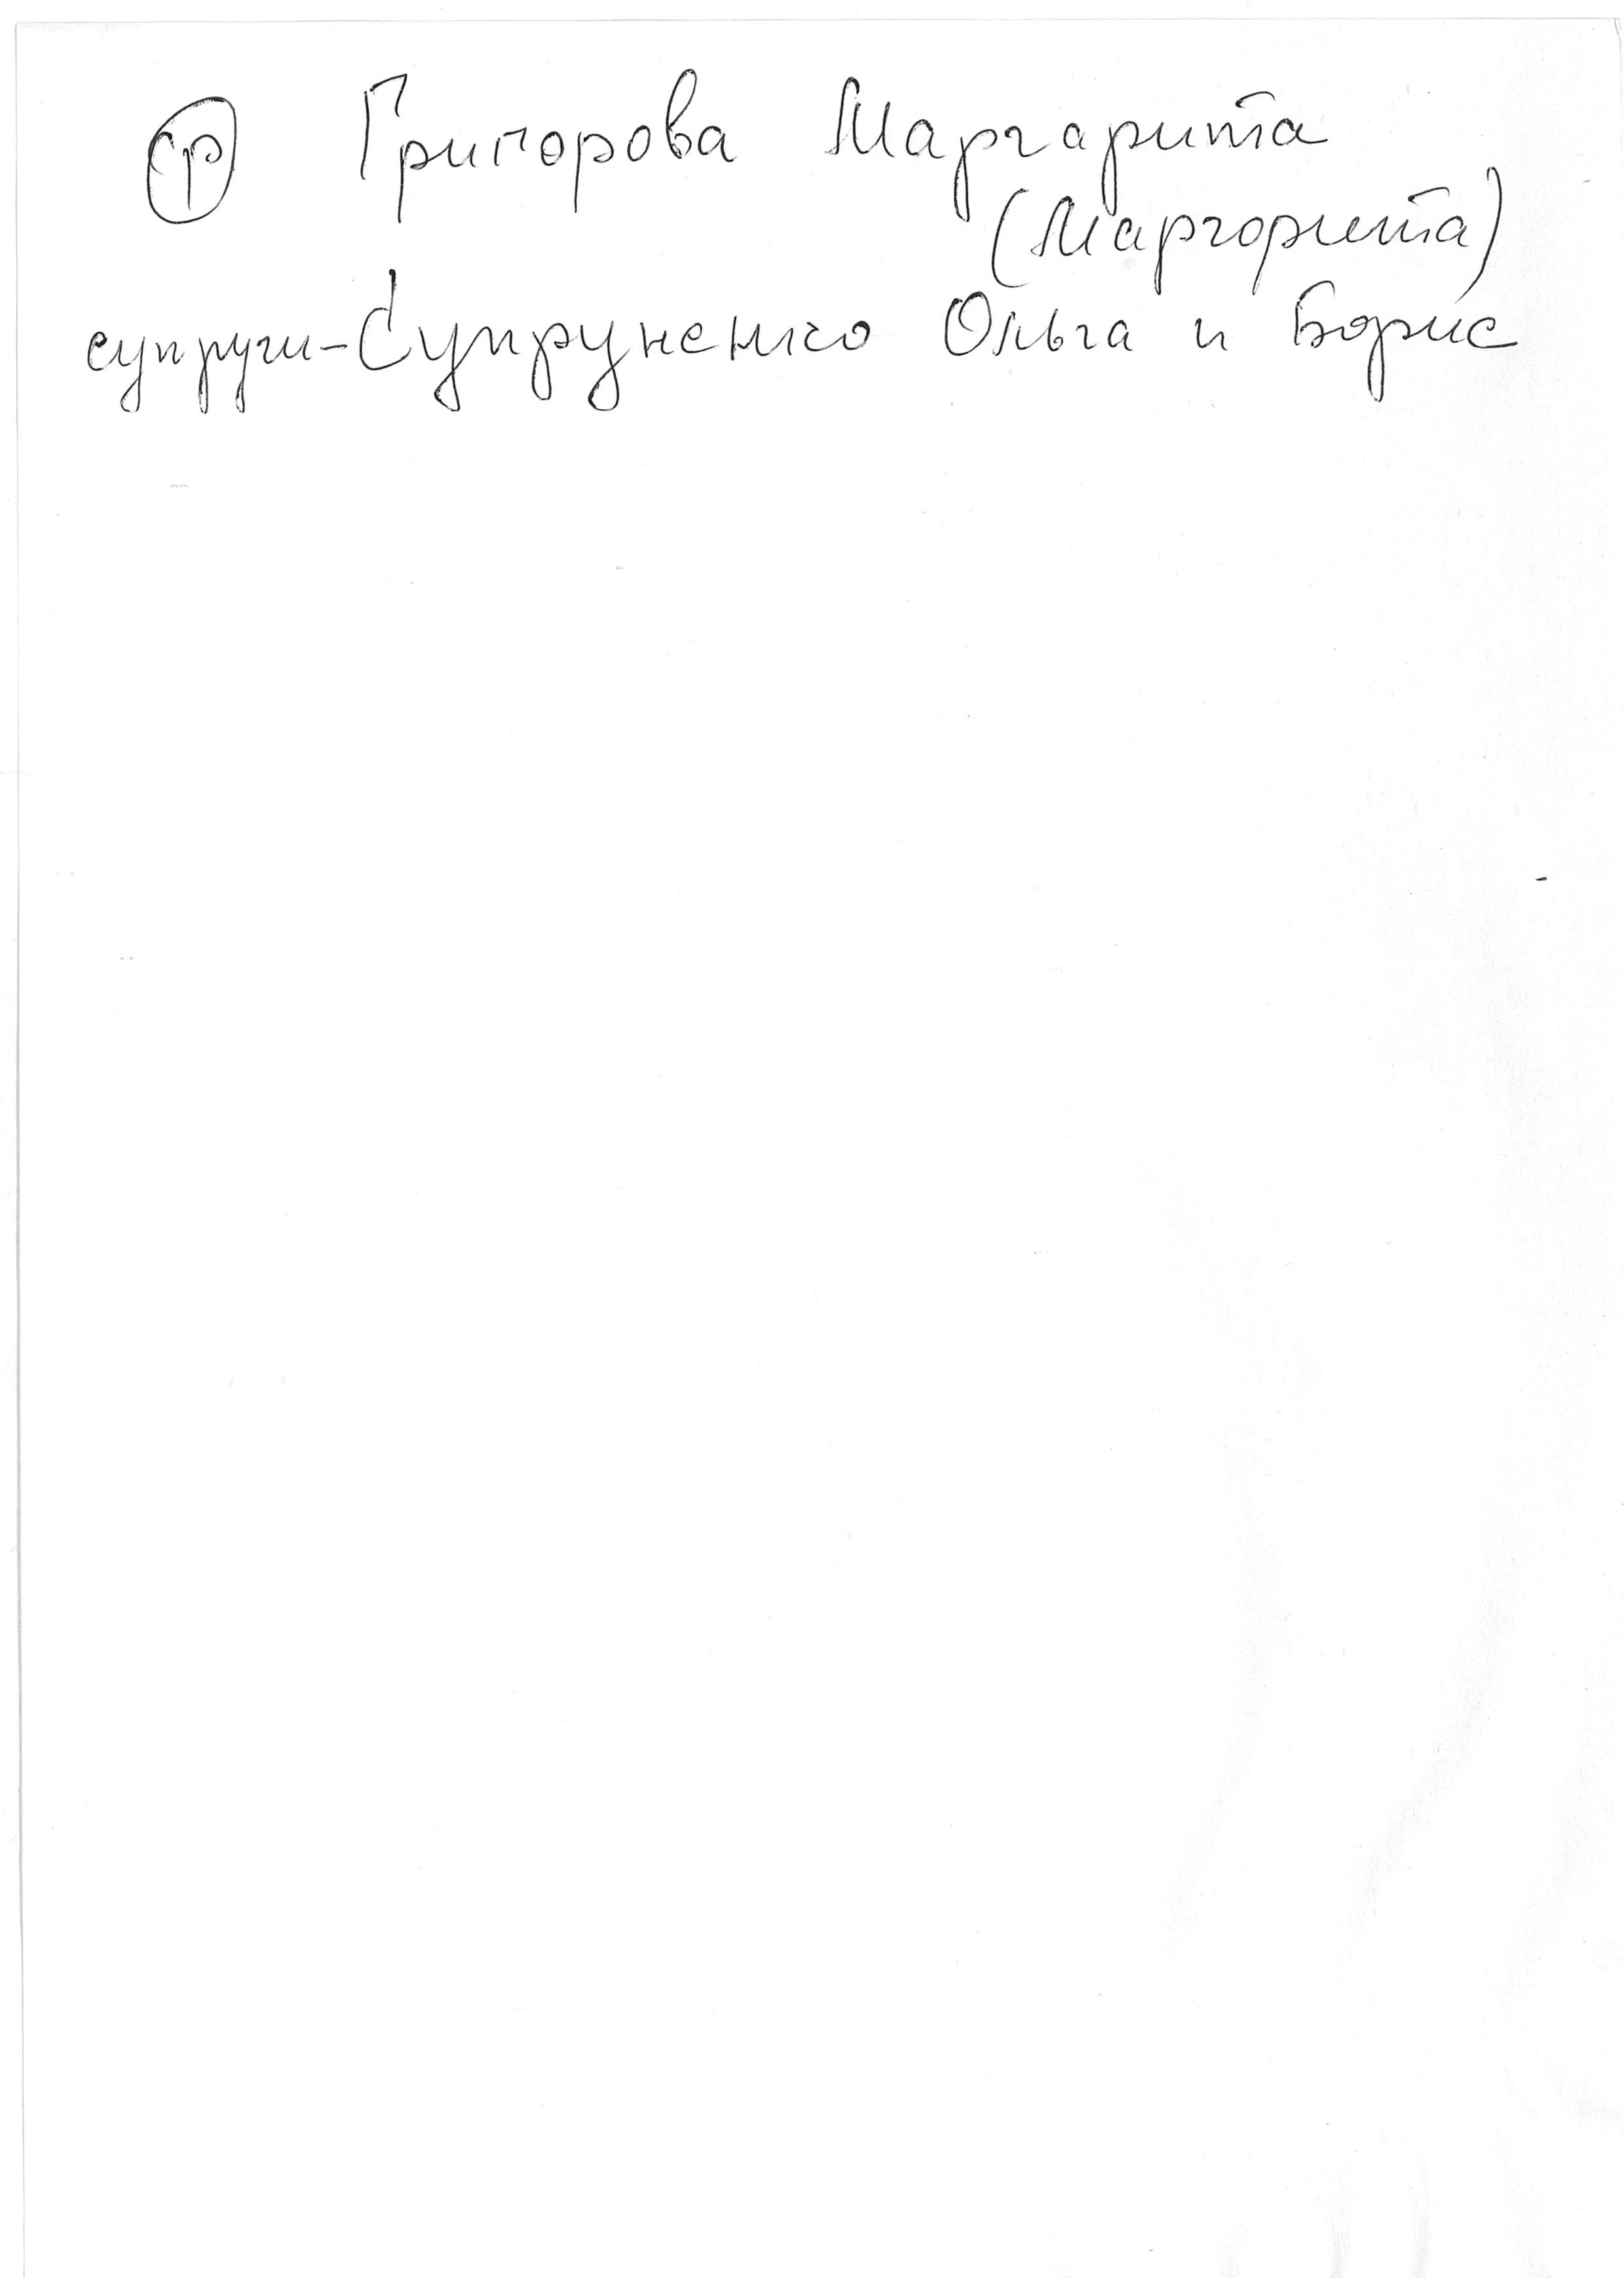 Ⓟ Григорова Маргарита
(Маргорита)
супруги-Супруненко Ольга и Борис